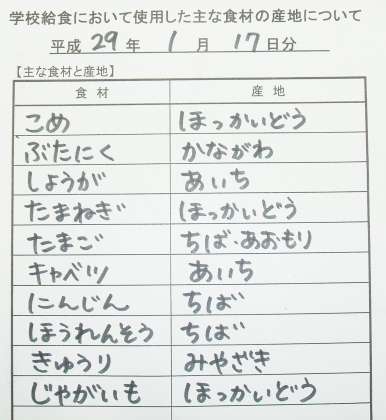 学校給食において使用した主な食材の産地について
平成 29 年 1 月 17 日分
【主な食材と産地】
食材 産地
こめ ほっかいどう
ぶたにく かながわ
しょうが あいち
たまねぎ ほっかいどう
たまご ちば・あおもり
キャベツ あいち
にんじん ちば
ほうれんそう ちば
きゅうり みやざき
じゃがいも ほっかいどう